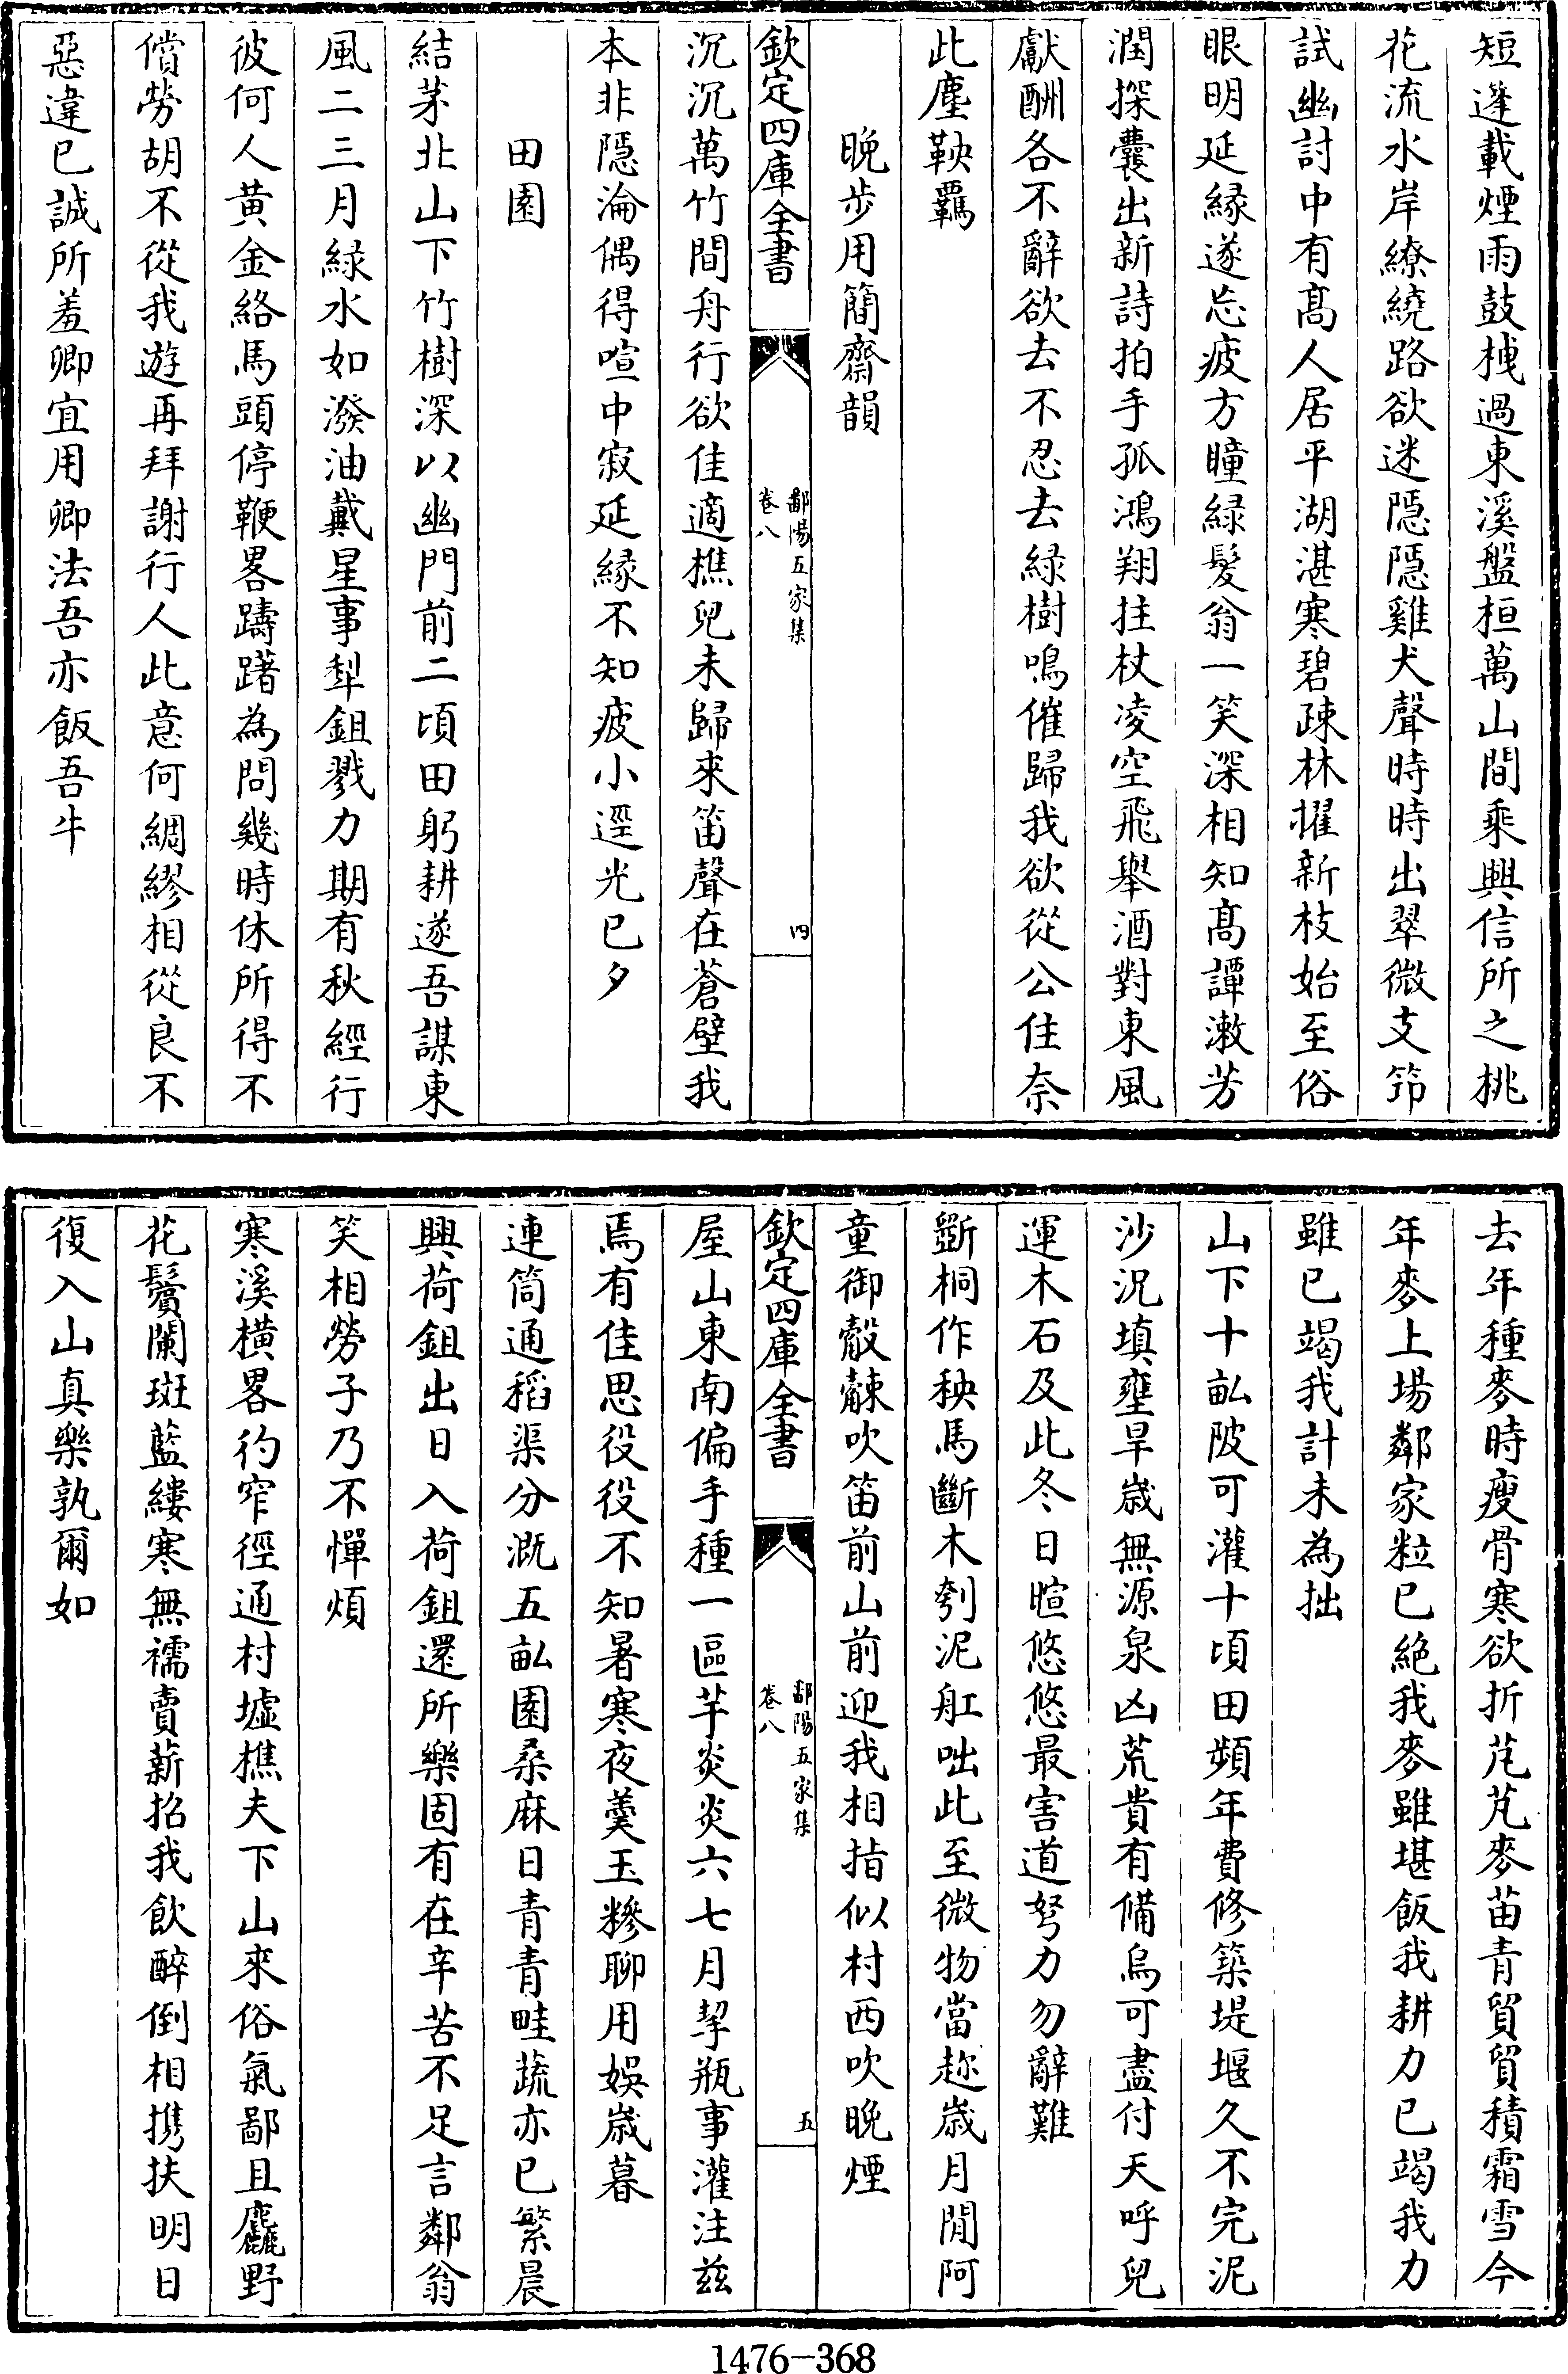 短篷載煙雨鼓栧過東溪盤桓萬山間乘興信所之桃
花流水岸繚繞路欲迷隠隠雞犬聲時時出翠微支笻
試幽討中有髙人居平湖湛寒碧疎林擢新枝始至俗
眼明延縁遂忘疲方瞳緑髪翁一笑深相知髙譚漱芳
潤探囊出新詩拍手孤鴻翔拄杖凌空飛舉酒對東風
獻酬各不辭欲去不忍去緑樹鳴催歸我欲從公住奈
此塵鞅羈
晚步用簡齋韻
欽定四庫全書
鄱陽五家集
卷八
四
沉沉萬竹間舟行欲佳適樵兒未歸來笛聲在蒼壁我
本非隠淪偶得喧中寂延縁不知疲小逕光已夕
田園
結茅北山下竹樹深以幽門前二頃田躬耕遂吾謀東
風二三月緑水如潑油戴星事犁鉏戮力期有秋經行
彼何人黄金絡馬頭停鞭畧躊躇為問幾時休所得不
償勞胡不從我遊再拜謝行人此意何綢繆相從良不
惡違已誠所羞卿宜用卿法吾亦飯吾牛
去年種麥時瘦骨寒欲折芃芃麥苗青貿貿積霜雪今
年麥上場鄰家粒已絶我麥雖堪飯我耕力已竭我力
雖已竭我計未為拙
山下十畝陂可灌十頃田頻年費修築堤堰久不完泥
沙况填壅旱歳無源泉凶荒貴有備烏可盡付天呼兒
運木石及此冬日暄悠悠最害道努力勿辭難
斲桐作秧馬斷木刳泥舡咄此至微物當趂歳月閒阿
童御觳觫吹笛前山前迎我相指似村西吹晚煙
欽定四庫全書
鄱陽五家集
卷八
五
屋山東南偏手種一區芋炎炎六七月挈瓶事灌注兹
焉有佳思役役不知暑寒夜羮玉糝聊用娛歳暮
連筒通稻渠分溉五畝園桑麻日青青畦蔬亦已繁晨
興荷鉏出日入荷鉏還所樂固有在辛苦不足言鄰翁
笑相勞子乃不憚煩
寒溪橫畧彴窄徑通村墟樵夫下山來俗氣鄙且麤野
花鬢闌斑藍縷寒無襦賣薪招我飲醉倒相携扶明日
復入山真樂孰爾如
1476-368